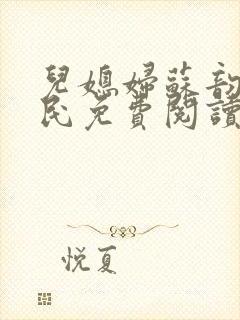 兒媳婦蘇韵
民免費閱讀
悅夏